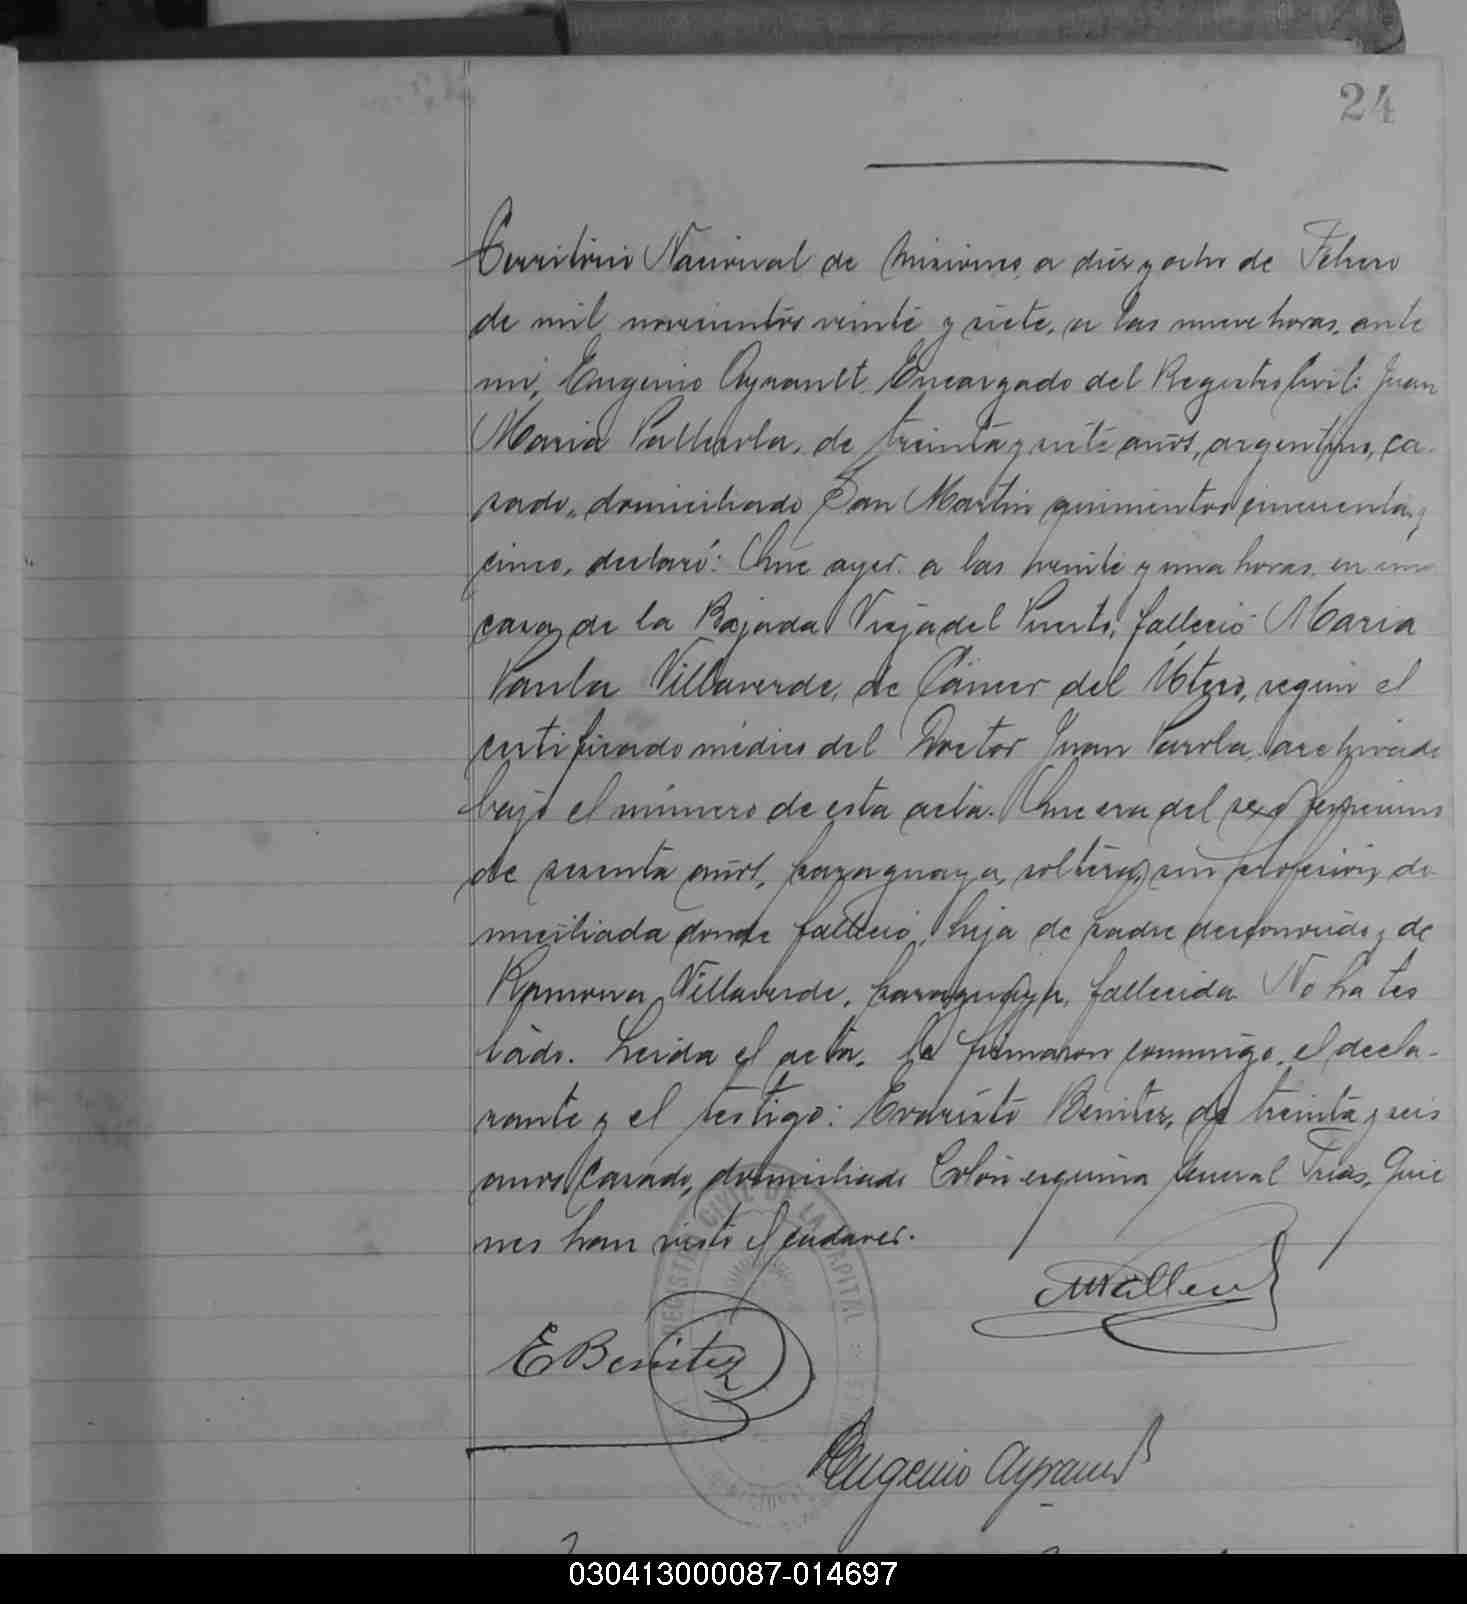 24
Territorio Nacional de Misiones, a diez y ocho de Febrero
de mil novecientos veinte y siete, a las nueve horas, ante
mi, Eugenio Ayrault, Encargado del Registro Civil: Juan
Maria de treinta y siete años, argentino, ca-
sado, domiciliado San Martin quinientos cincuenta y
cinco, declaró: Que ayer a las veinte y una horas, en una
casa de la Bajada Vieja del Puerto, falleció Maria
Paula Villaverde, de Cáncer del Utero, según el
certificado médico del Doctor Juan archivado
bajo el número de esta acta. Que era del sexo femenino
de sesenta años, paraguaya, soltera, sin profesión, do-
miciliada donde falleció, hija de padre desconocido y de
Ramona Villaverde, paraguaya, fallecida. No ha tes
tado. Leida el acta, la firmaron conmigo, el decla-
rante y el testigo: Evaristo Benitez, de treinta y seis
años, casado, domiciliado Colón esquina General Frias, Quie
nes han visto el cadaver.
E Benitez
Eugenio Ayrault
REGISTRO CIVIL DE LA CAPITAL
030413000087-014697